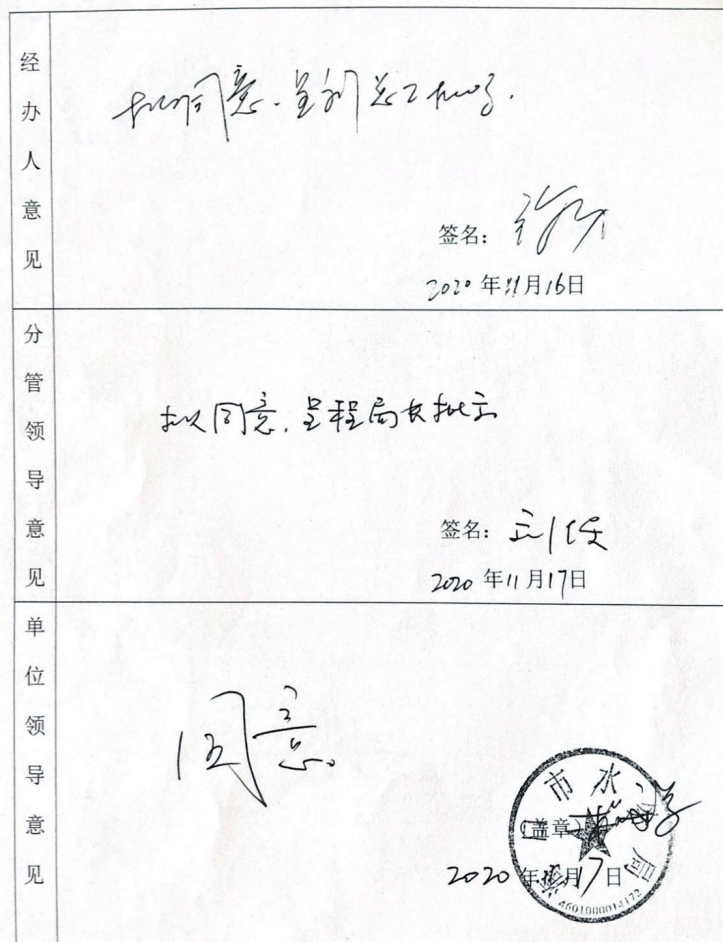 经办人意见
拟同意.呈刘总工批示.
签名:
2020年11月16日
分管领导意见
拟同意.呈程局长批示
签名: 刘俊
2020年11月17日
单位领导意见
同意。
市水
局
(盖章)
2020年11月17日
4601000014172